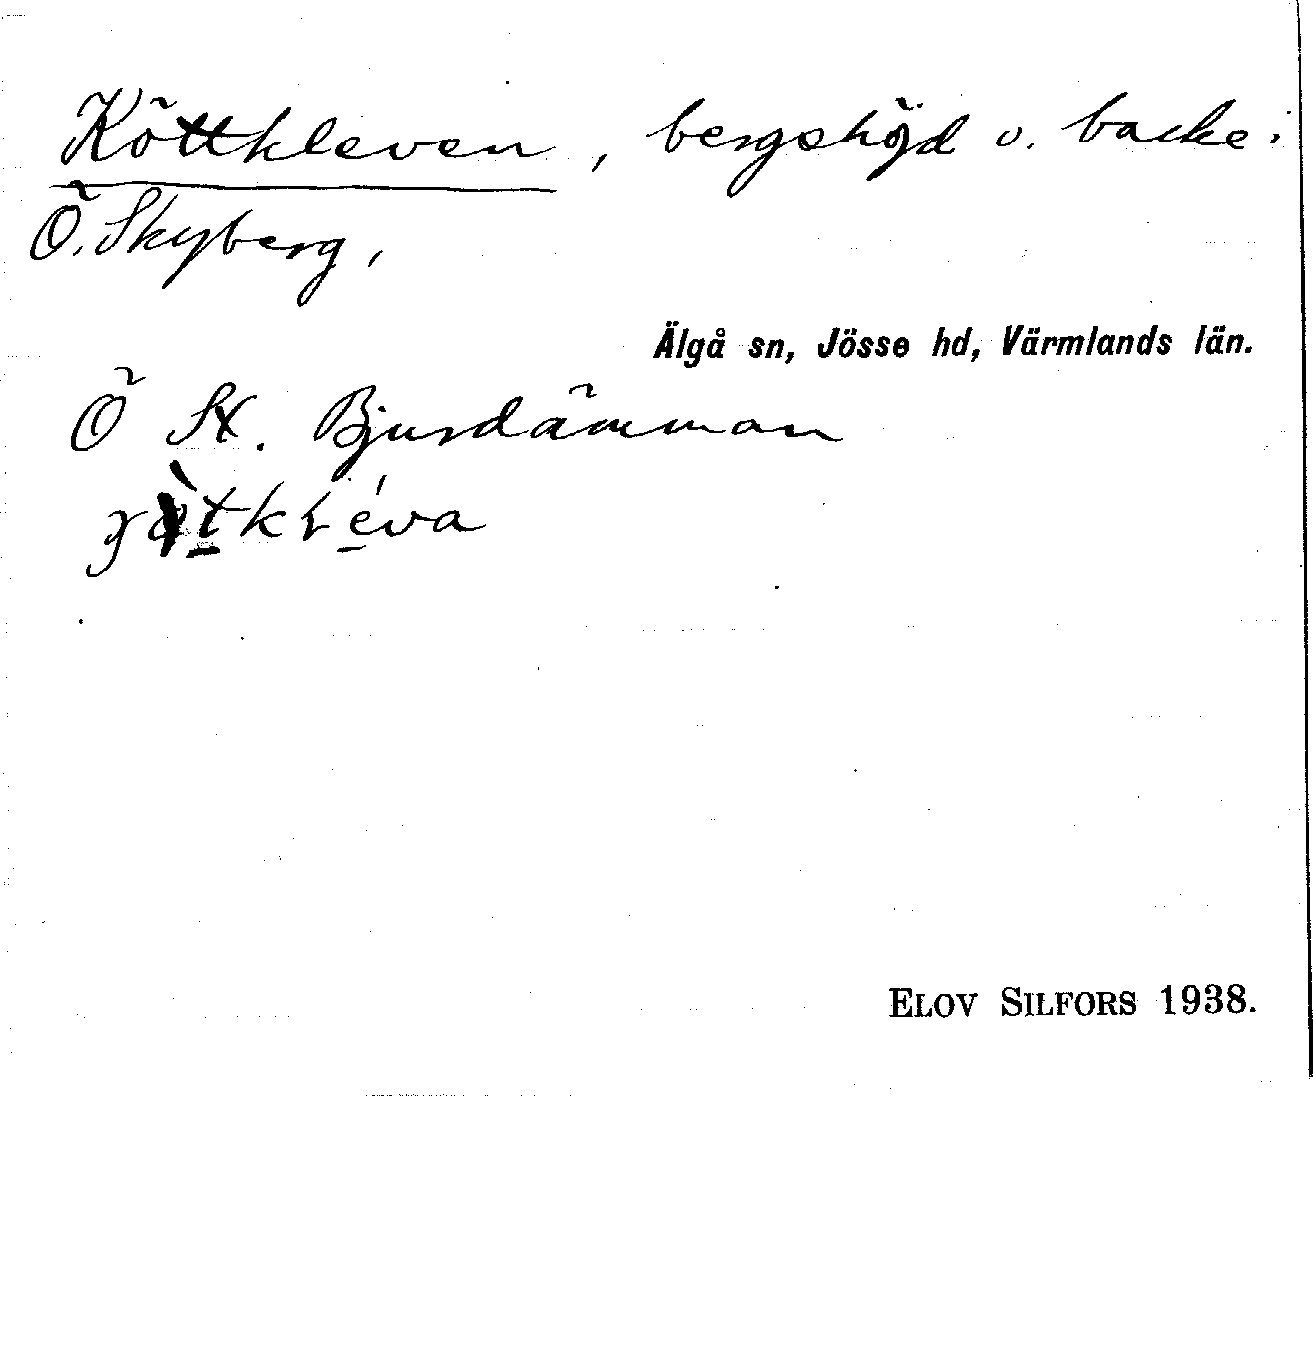 Köttkleven, bergshöjd o. backe i
Ö. Skyberg,
Älgå sn, Jösse hd, Värmlands län.
Ö St. Bjursdämman
ELOV SILFORS 1938.